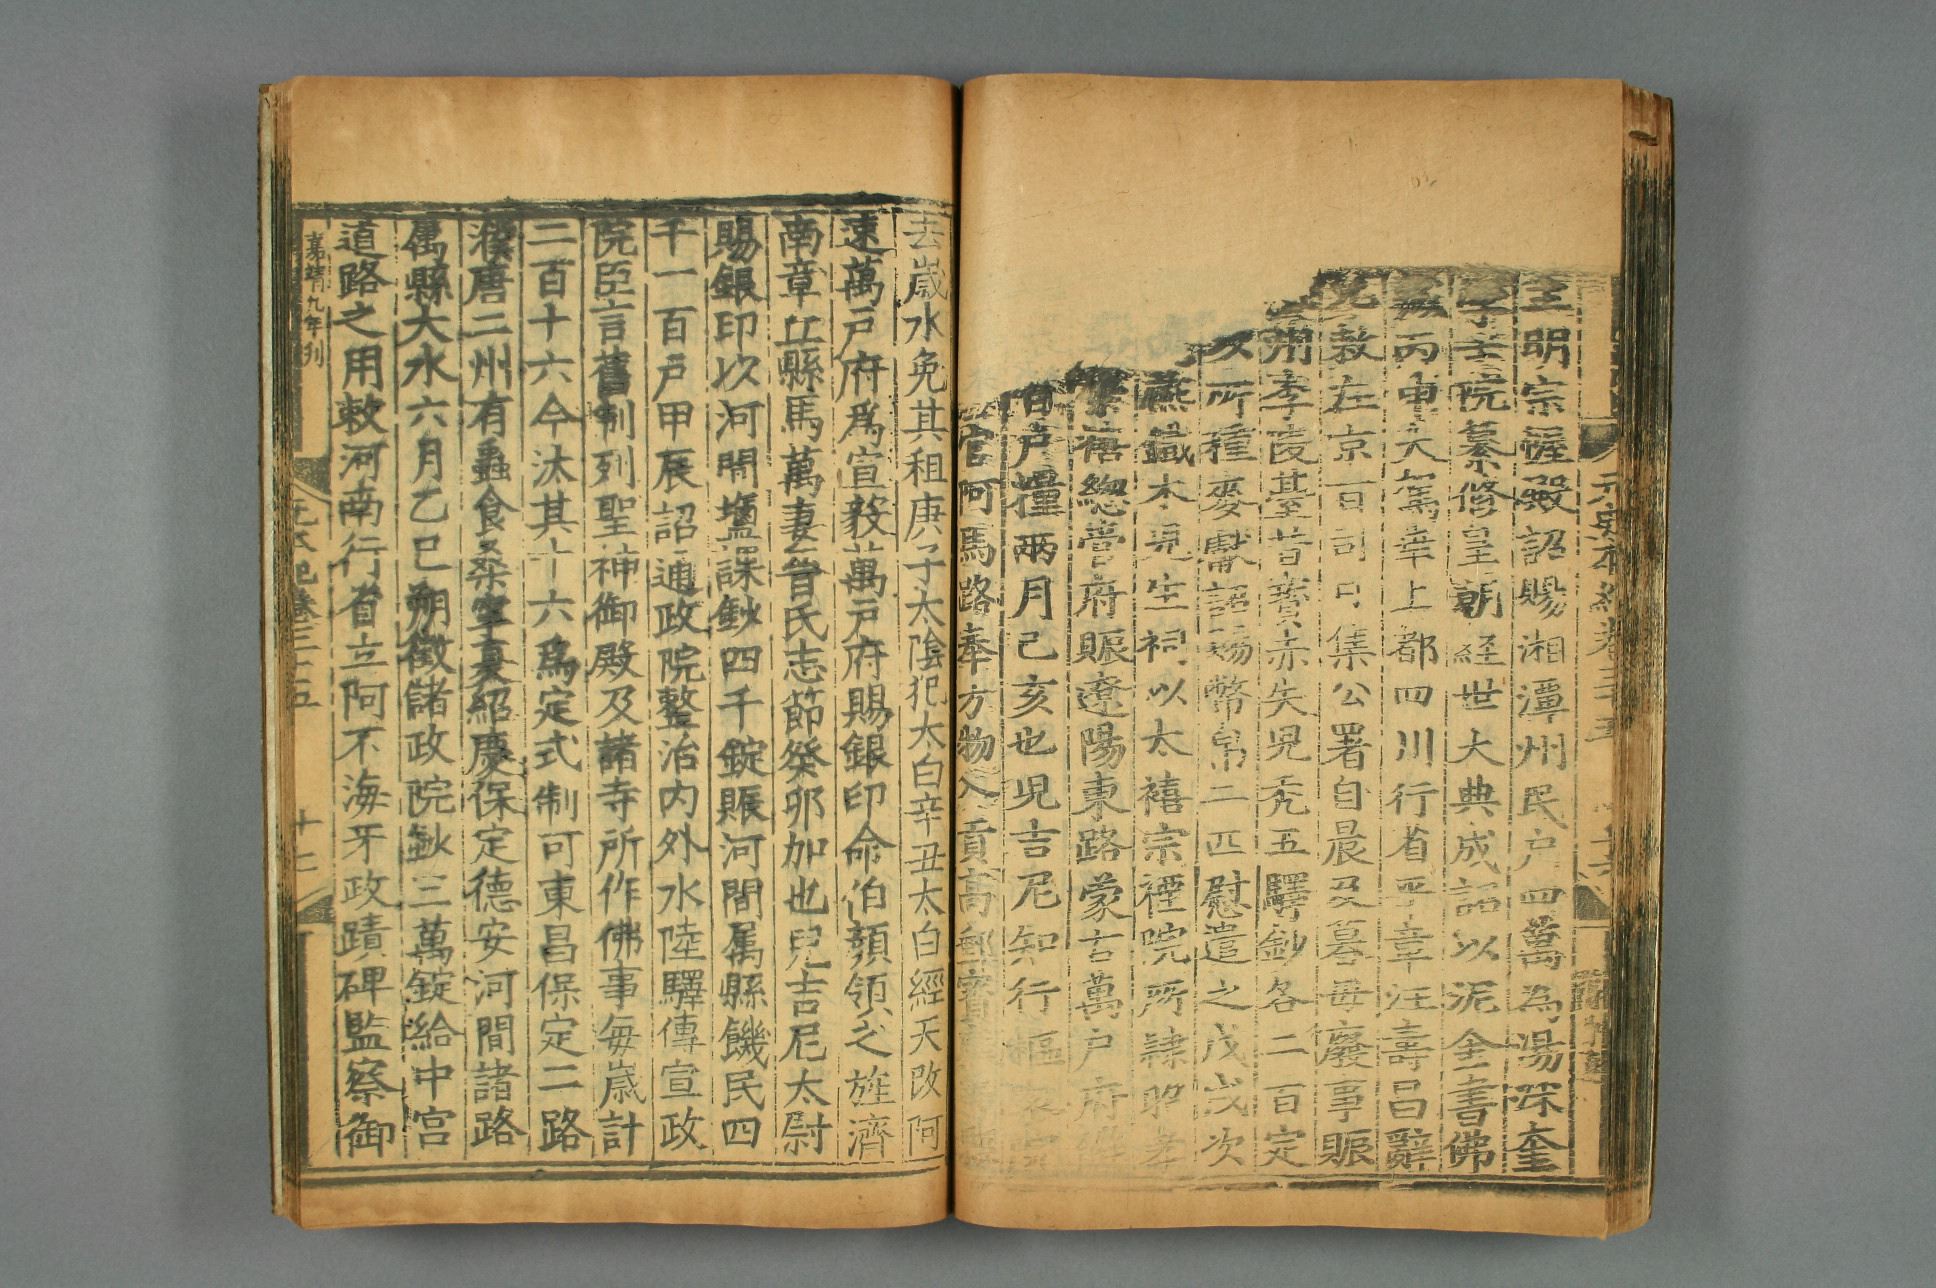 明宗幄殿詔賜湘潭州民户四萬為湯沐奎
士院纂修皇朝経世大典成詔以泥金書佛
丙申大駕幸上都四川行省平章汪壽昌辭
救在京百司日集公署自晨及暮毋廢事賑
朔李陵臺昔寶赤失児禿五驛鈔各二百定
人所種麥獻詔賜幣帛二匹慰遣之戊戌次
燕鐵木児生祠以太禧宗禋院所隷昭孝
禧緫管府賑遼陽東路蒙古萬户府
户糧兩月己亥也児吉尼知行樞
官阿馬路奉方物入貢髙郵寳
去嵗水免其租庚子太陰犯太白辛丑太白經天改阿
速萬户府爲宣毅萬户府賜銀印命伯顔領之旌濟
南章丘縣馬萬妻晉氏志節癸卯加也兒吉尼太尉
賜銀印以河間塩課鈔四千錠賑河間属縣饑民四
千一百户甲辰詔通政院整治内外水陸驛傳宣政
院臣言舊制列聖神御殿及諸寺所作佛事毎嵗計
二百十六今汰其十六爲定式制可東昌保定二路
濮唐二州有蟲食桑寧夏紹慶保定德安河間諸路
属縣大水六月乙巳朔徵儲政院鈔三萬錠給中宮
道路之用敕河南行省立阿不海牙政蹟碑監察御
嘉靖九年刋
元本紀卷三十五
十七